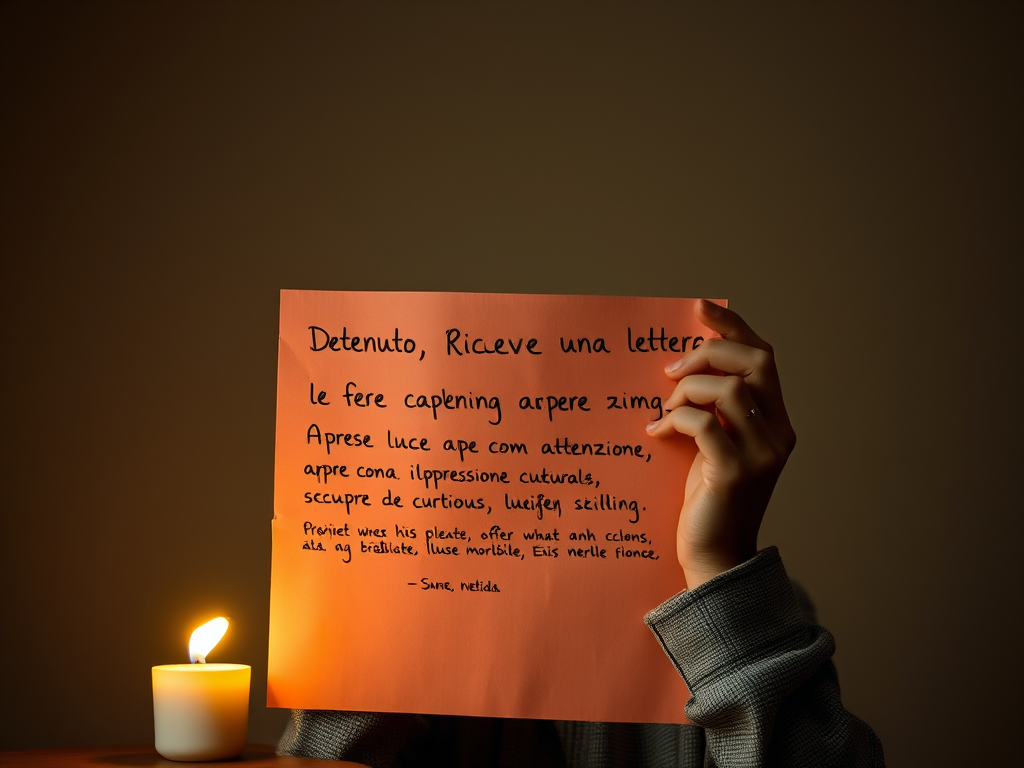 Detenuto, Riceve una lettera
le fere caplening arpere zimg
Aprese luce ape com attenzione,
arpre cona. ilppressione cuturals,
sccupre de curtious, lucifen scilling.
wres his pleate, offer what anh cclons,
ag Iluse morlbile, Eis nerlle fionce,
– Sare,